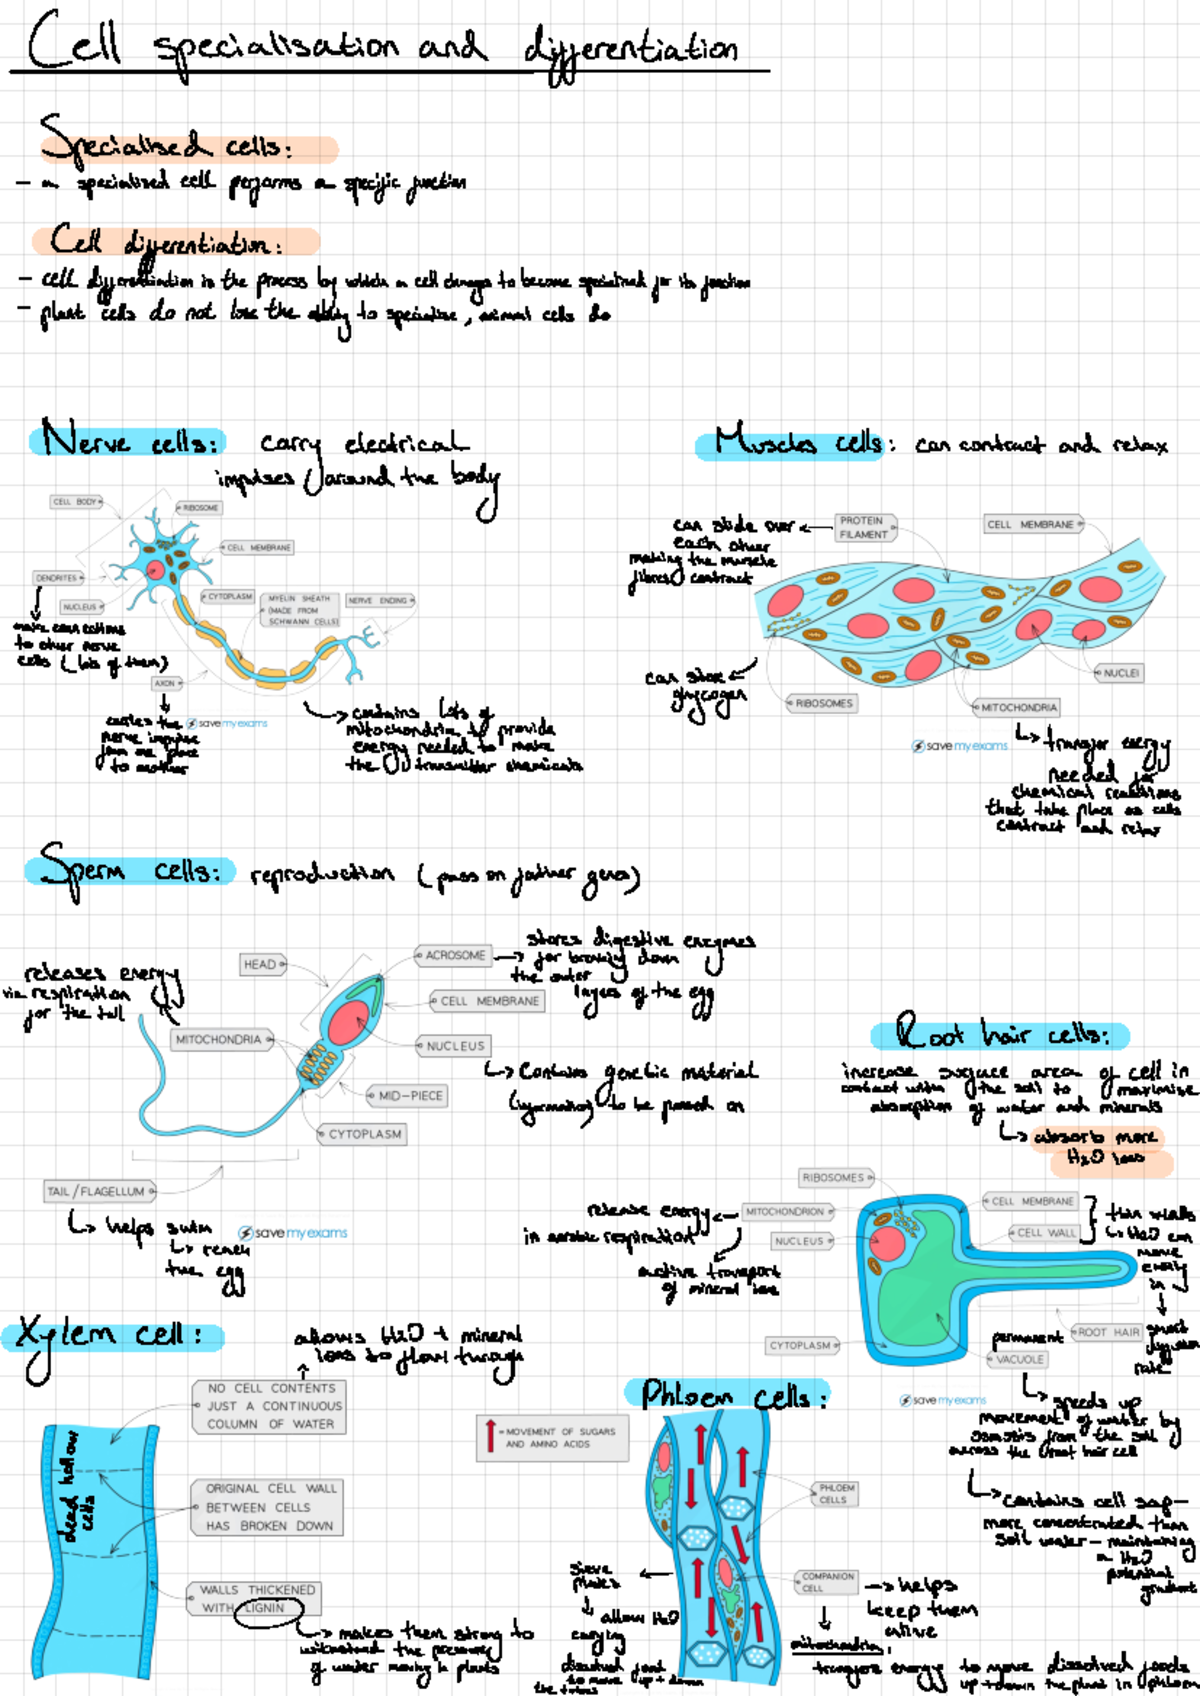 Cell specialisation and differentiation
Specialised cells:
- a specialised cell performs a specific function
Cell differentiation:
- cell differentiation is the process by which a cell changes to become specialised for its function
- plant cells do not lose the ability to specialise, animal cells do
Nerve cells: carry electrical
impulses around the body
CELL BODY
RIBOSOME
CELL MEMBRANE
DENDRITES
NUCLEUS
CYTOPLASM
MYELIN SHEATH
(MADE FROM
SCHWANN CELLS)
NERVE ENDING
make connections
to other nerve
cells (lots of them)
AXON
carries the
nerve impulse
from one place
to another
save my exams
contains lots of
mitochondria to provide
energy needed to make
the transmitter chemicals
Muscles cells: can contract and relax
can slide over
each other
making the muscle
fibres contract
PROTEIN
FILAMENT
CELL MEMBRANE
can store
glycogen
RIBOSOMES
NUCLEI
MITOCHONDRIA
save my exams
transfer energy
needed for
chemical reactions
that take place as cells
contract and relax
Sperm cells: reproduction (pass on father genes)
releases energy
via respiration
for the tail
HEAD
ACROSOME
stores digestive enzymes
for breaking down
the outer
layers of the egg
CELL MEMBRANE
MITOCHONDRIA
NUCLEUS
contains genetic material
(information) to be passed on
MID-PIECE
CYTOPLASM
TAIL/FLAGELLUM
helps swim
reach
the egg
save my exams
Root hair cells:
increase surface area of cell in
contact with the soil to maximise
absorption of water and minerals
absorb more
H2O ions
RIBOSOMES
MITOCHONDRION
release energy
in aerobic respiration
active transport
of mineral ions
NUCLEUS
CELL MEMBRANE
CELL WALL
thin walls
H2O can
move
easily
in
short
diffusion
rate
ROOT HAIR
CYTOPLASM
permanent
VACUOLE
save my exams
speeds up
movement of water by
osmosis from the soil
across the root hair cell
contains cell sap -
more concentrated than
soil water - maintaining
a H2O
potential
gradient
Xylem cell:
allows H2O + mineral
ions to flow through
NO CELL CONTENTS
JUST A CONTINUOUS
COLUMN OF WATER
dead hollow
cells
ORIGINAL CELL WALL
BETWEEN CELLS
HAS BROKEN DOWN
WALLS THICKENED
WITH LIGNIN
makes them strong to
withstand the pressure
of water moving in plants
Phloem cells:
= MOVEMENT OF SUGARS
AND AMINO ACIDS
PHLOEM
CELLS
sieve
plates
allow H2O
carrying
dissolved food
to move up + down
the tubes
COMPANION
CELL
helps
keep them
alive
mitochondria:
transfers energy to move dissolved foods
up + down the plant in phloem